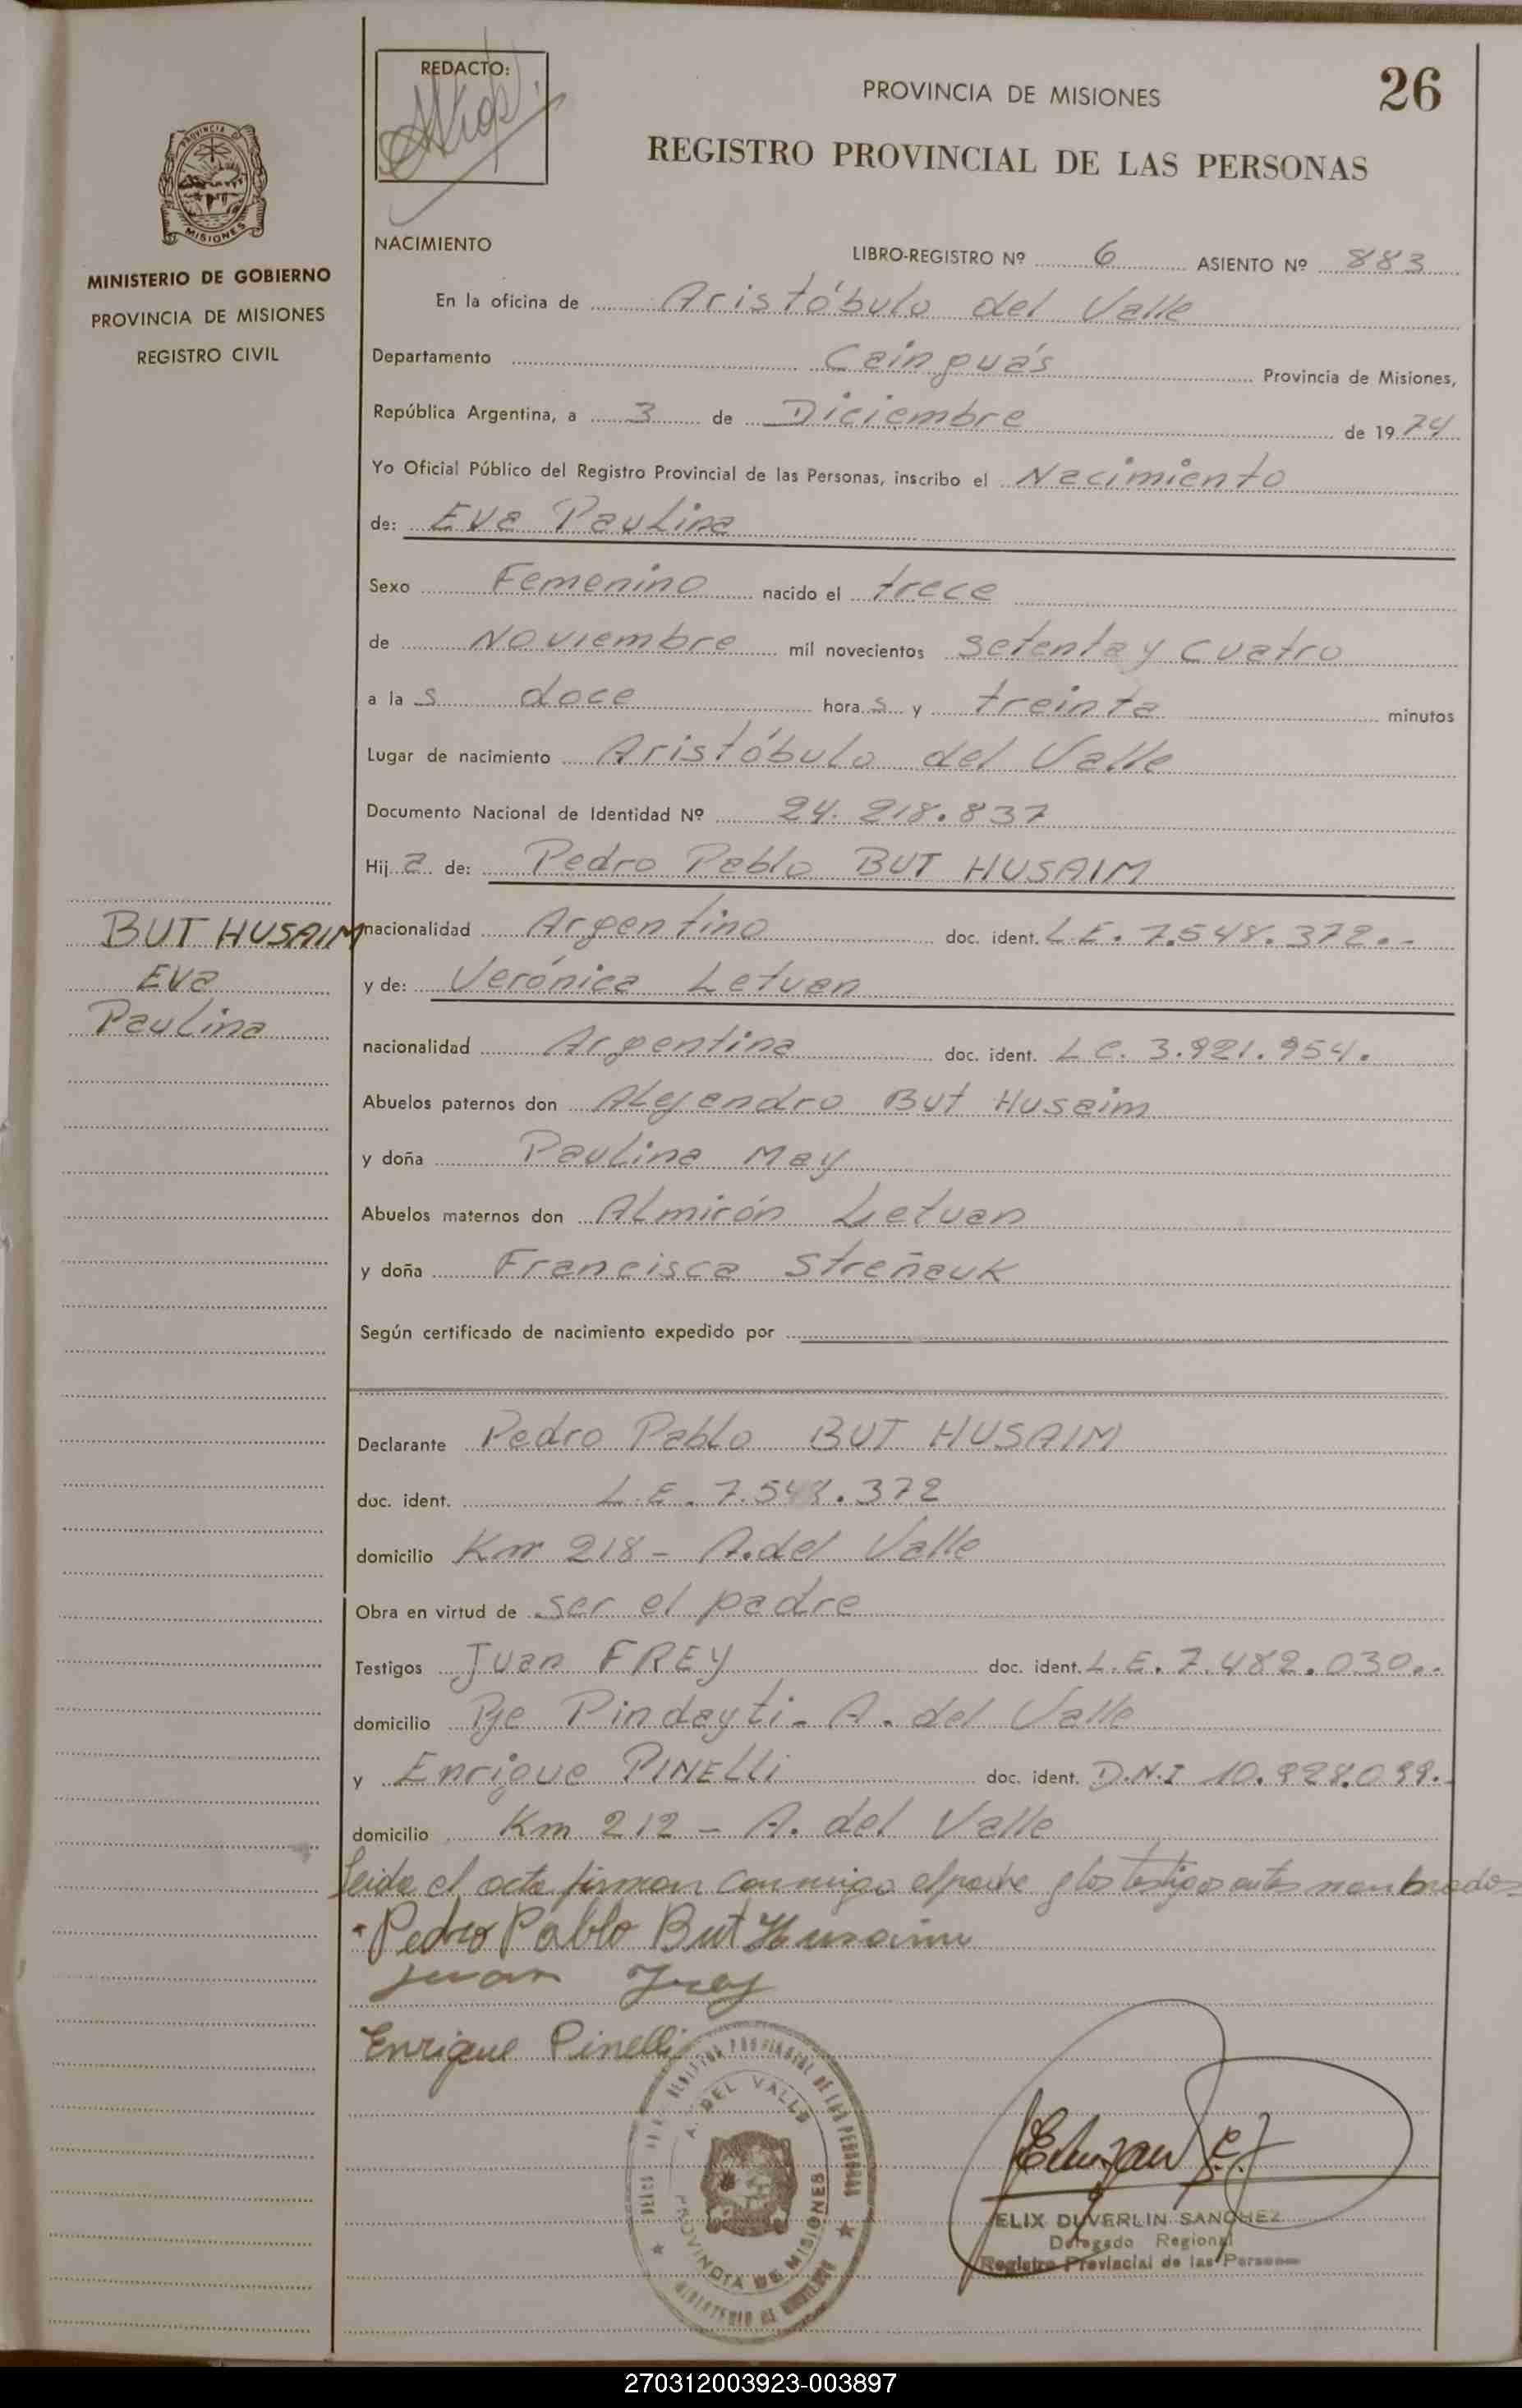 REDACTO:
PROVINCIA DE MISIONES
26
REGISTRO PROVINCIAL DE LAS PERSONAS
MISIONES
MINISTERIO DE GOBIERNO
PROVINCIA DE MISIONES
REGISTRO CIVIL
NACIMIENTO
LIBRO-REGISTRO Nº 6 ASIENTO Nº 883
En la oficina de Aristóbulo del Valle
Departamento Cainguás Provincia de Misiones,
República Argentina, a 3 de Diciembre de 1974
Yo Oficial Público del Registro Provincial de las Personas, inscribo el Nacimiento
de: Eva Paulina
Sexo Femenino nacido el trece
de Noviembre mil novecientos setenta y cuatro
a la s doce hora s y treinta minutos
Lugar de nacimiento Aristóbulo del Valle
Documento Nacional de Identidad Nº 24.218.837
Hij a de: Pedro Pablo BUT HUSAIM
BUT HUSAIM
Eva
Paulina
nacionalidad Argentino doc. ident. L.E. 7.548.372.-
y de: Verónica Letuan
nacionalidad Argentina doc. ident. L C. 3.921.954.
Abuelos paternos don Alejandro But Husaim
y doña Paulina May
Abuelos maternos don Almirón Letuan
y doña Francisca Streñauk
Según certificado de nacimiento expedido por
Declarante Pedro Pablo BUT HUSAIM
doc. ident. L.E. 7.548.372
domicilio Km 218 - A. del Valle
Obra en virtud de ser el padre
Testigos Juan FREY doc. ident. L.E. 7.482.030.-
domicilio Pje Pindayti - A. del Valle
y Enrique PINELLI doc. ident. D.N.I 10.928.099.-
domicilio Km 212 - A. del Valle
Leida el acta firman conmigo el padre y los testigos antes nombrados
Pedro Pablo But Husaim
Juan Frey
Enrique Pinelli
REGISTRO PROVINCIAL DE LAS PERSONAS
A. DEL VALLE
PROVINCIA DE MISIONES
MINISTERIO DE GOBIERNO
FELIX DUVERLIN SANCHEZ
Delegado Regional
Registro Provincial de las Personas
270312003923-003897